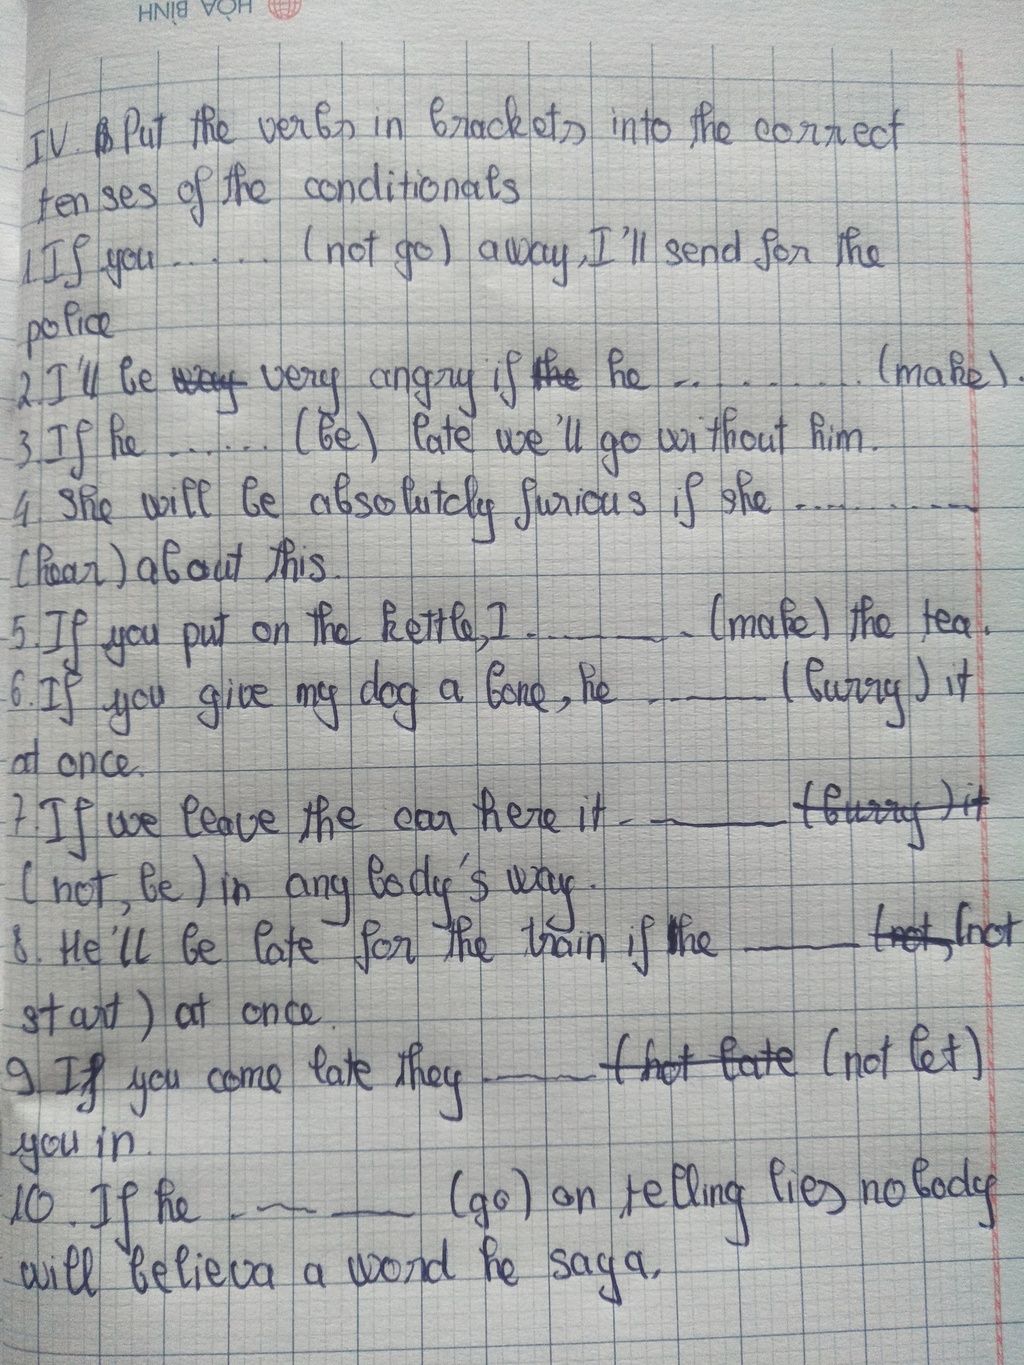 HÒA BÌNH
IV. Put the verbs in brackets into the correct
tenses of the conditionals
1. If you ...... (not go) away, I'll send for the
police
2. I'll be way very angry if the he ........... (make).
3. If he ...... (be) late we'll go without him.
4. She will be absolutely furious if she ............
(hear) about this.
5. If you put on the kettle, I ________ (make) the tea.
6. If you give my dog a bone, he ______ (burry) it
at once.
7. If we leave the car here it ________ (burry) it
(not, be) in any body's way.
8. He'll be late for the train if the ______ (not, (not
start) at once.
9. If you come late they ______ (not late (not let)
you in.
10. If he ________ (go) on telling lies nobody
will believa a word he saya.